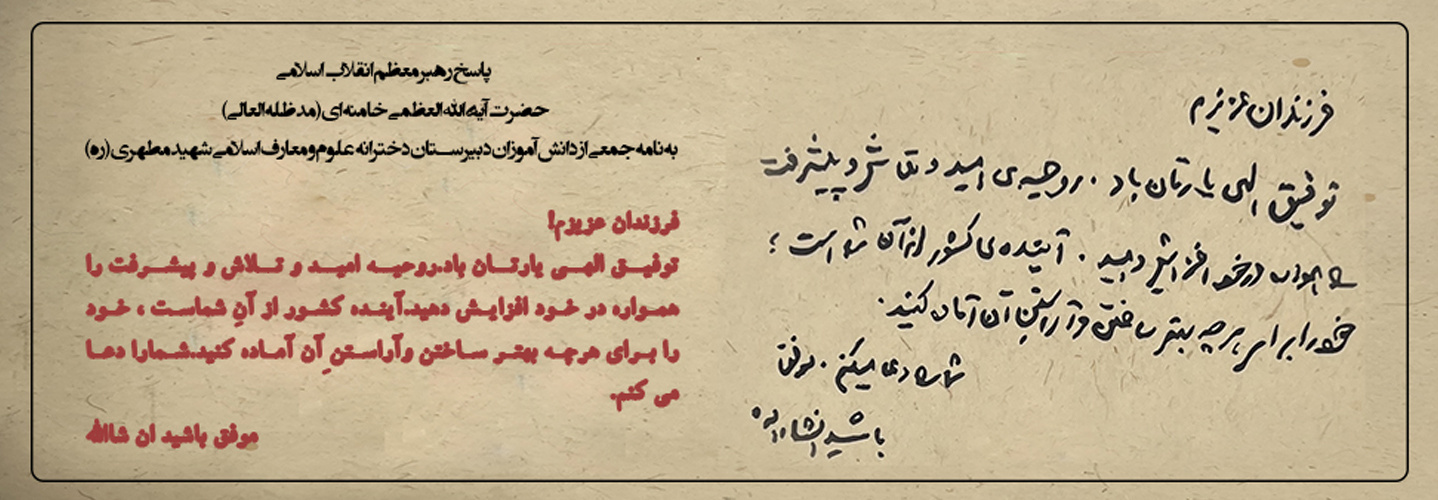 فرزندان عزیزم
توفیق الهی یارتان باد. روحیه‌ی امید و تلاش و پیشرفت
را همواره در خود افزایش دهید. آینده‌ی کشور از آن شما است؛
خود را برای هر چه بهتر ساختن و آراستن آن آماده کنید.
شما را دعا میکنم. موفق
باشید انشاءالله
پاسخ رهبر معظم انقلاب اسلامی
حضرت آیه‌الله العظمی خامنه‌ای (مدظله‌العالی)
به نامه جمعی از دانش آموزان دبیرستان دخترانه علوم و معارف اسلامی شهید مطهری (ره)
فرزندان عزیزم!
توفیق الهی یارتان باد.روحیه امید و تلاش و پیشرفت را
همواره در خود افزایش دهید.آینده کشور از آنِ شماست ، خود
را برای هرچه بهتر ساختن وآراستنِ آن آماده کنید.شمارا دعا
می کنم.
موفق باشید ان شاالله